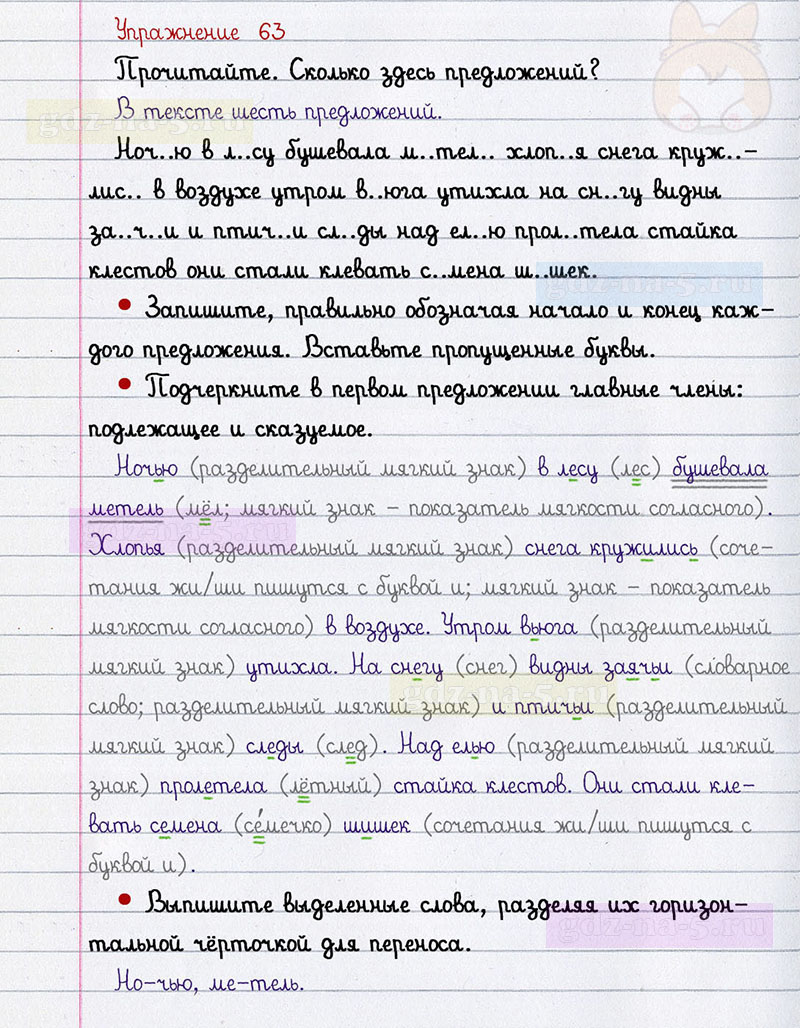 Упражнение 63
Прочитайте. Сколько здесь предложений?
В тексте шесть предложений.
gdz-na-5.ru
Ноч..ю в л..су бушевала м..тел.. хлоп..я снега круж..-
лис.. в воздухе утром в..юга утихла на сн..гу видны
за..ч..и и птич..и сл..ды над ел..ю прол..тела стайка
клестов они стали клевать с..мена ш..шек.
gdz-na-5.ru
• Запишите, правильно обозначая начало и конец каж-
дого предложения. Вставьте пропущенные буквы.
• Подчеркните в первом предложении главные члены:
подлежащее и сказуемое.
Ночью (разделительный мягкий знак) в лесу (лес) бушевала
метель (мёл; мягкий знак – показатель мягкости согласного).
gdz-na-5.ru
Хлопья (разделительный мягкий знак) снега кружились (соче-
тания жи/ши пишутся с буквой и; мягкий знак – показатель
мягкости согласного) в воздухе. Утром вьюга (разделительный
мягкий знак) утихла. На снегу (снег) видны заячьи (словарное
слово; разделительный мягкий знак) и птичьи (разделительный
gdz-na-5.ru
мягкий знак) следы (след). Над елью (разделительный мягкий
знак) пролетела (лётный) стайка клестов. Они стали кле-
вать семена (се́мечко) шишек (сочетания жи/ши пишутся с
буквой и).
• Выпишите выделенные слова, разделяя их горизон-
тальной чёрточкой для переноса.
gdz-na-5.ru
Но-чью, ме-тель.